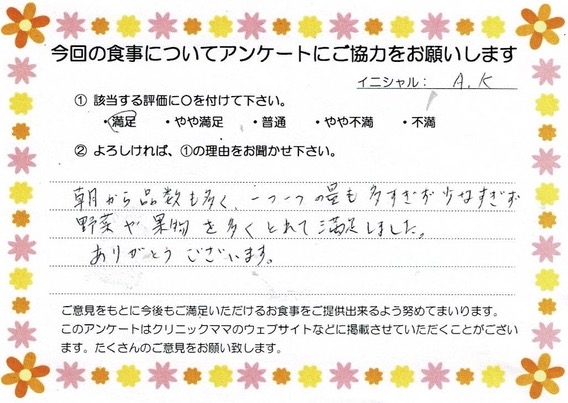 今回の食事についてアンケートにご協力をお願いします
イニシャル： A.K
① 該当する評価に○を付けて下さい。
・満足　・やや満足　・普通　・やや不満　・不満
② よろしければ、①の理由をお聞かせ下さい。
朝から品数も多く、一つ一つの量も多すぎず少なすぎず
野菜や果物を多くとれて満足しました。
ありがとうございます。
ご意見をもとに今後もご満足いただけるお食事をご提供出来るよう努めてまいります。
このアンケートはクリニックママのウェブサイトなどに掲載させていただくことがござい
ます。たくさんのご意見をお願い致します。